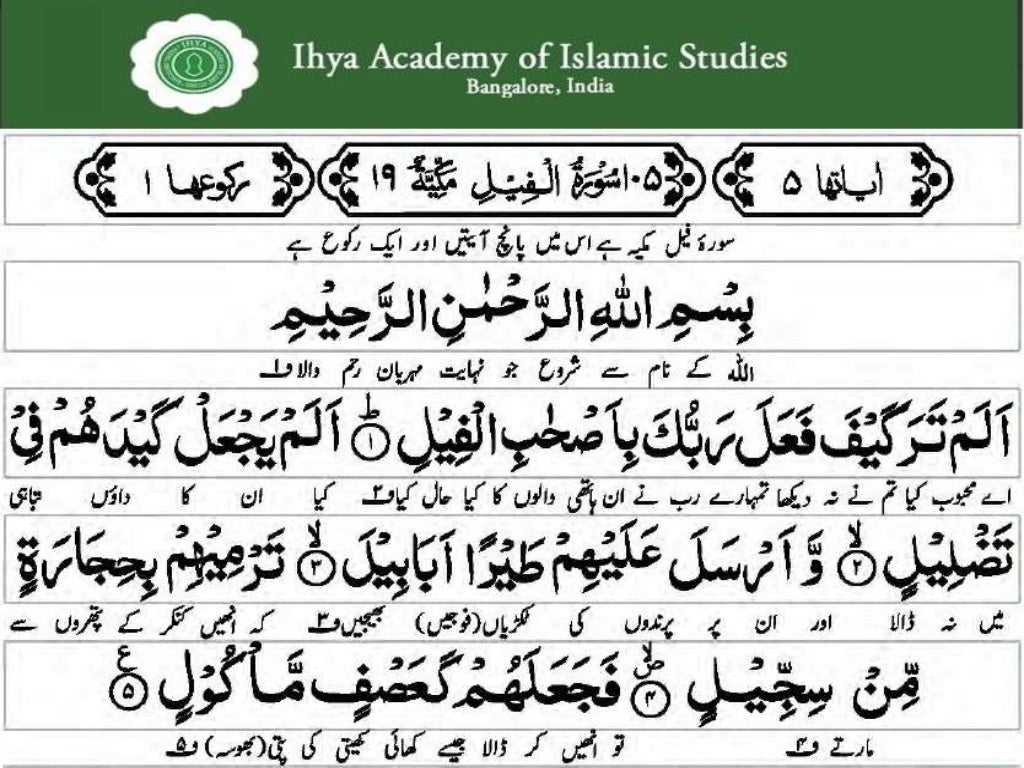 Ihya Academy of Islamic Studies
Bangalore, India
اٰیاتها ۵ ۱۰۵ سُوْرَةُ الْفِیْلِ مَكِّیَّةٌ ۱۹ ركوعها ۱
سورۂ فیل مکیہ ہے اس میں پانچ آیتیں اور ایک رکوع ہے
بِسْمِ اللّٰهِ الرَّحْمٰنِ الرَّحِیْمِ
اللہ کے نام سے شروع جو نہایت مہربان رحم والا ف۱
اَلَمْ تَرَ كَیْفَ فَعَلَ رَبُّكَ بِاَصْحٰبِ الْفِیْلِ ؕ﴿۱﴾ اَلَمْ یَجْعَلْ كَیْدَهُمْ فِیْ
اے محبوب کیا تم نے نہ دیکھا تمہارے رب نے ان ہاتھی والوں کا کیا حال کیا ف۲ کیا ان کا داؤں تباہی
تَضْلِیْلٍ ۙ﴿۲﴾ وَّ اَرْسَلَ عَلَیْهِمْ طَیْرًا اَبَابِیْلَ ۙ﴿۳﴾ تَرْمِیْهِمْ بِحِجَارَةٍ
میں نہ ڈالا اور ان پر پرندوں کی ٹکڑیاں (فوجیں) بھیجیں ف۳ کہ انھیں کنکر کے پتھروں سے
مِّنْ سِجِّیْلٍ ۪ۙ﴿۴﴾ فَجَعَلَهُمْ كَعَصْفٍ مَّاْكُوْلٍ ﴿۵﴾ ع
مارتے ف۴ تو انھیں کر ڈالا جیسے کھائی کھیتی کی پتی (بھوسہ) ف۵